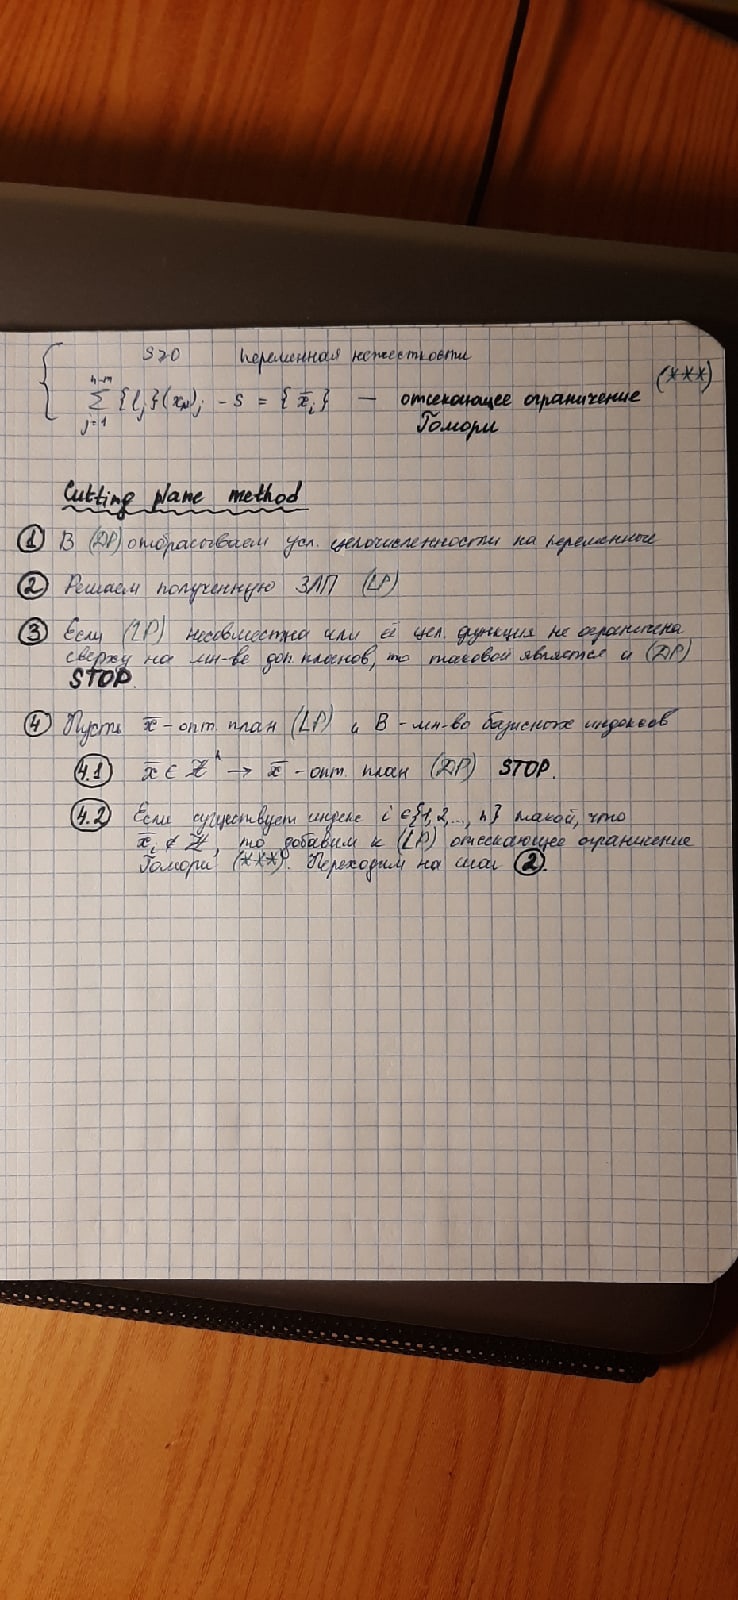 S≥0 переменная нежесткости
n-m
∑ {l_j}(x_N)_j - S = {x̄_i} — отсекающее ограничение (***)
j=1
Гомори
Cutting plane method
① В (DP) отбрасываем усл. целочисленности на переменные
② Решаем полученную ЗЛП (LP)
③ Если (LP) несовместна или её цел. функция не ограничена
сверху на мн-ве доп. планов, то таковой является и (DP)
STOP.
④ Пусть x̄ - опт. план (LP) и B - мн-во базисных индексов
4.1 x̄ ∈ ℤⁿ → x̄ - опт. план (DP) STOP.
4.2 Если существует индекс i ∈ {1, 2, ..., n} такой, что
x̄_i ∉ ℤ, то добавим к (LP) отсекающее ограничение
Гомори (***). Переходим на шаг ②.